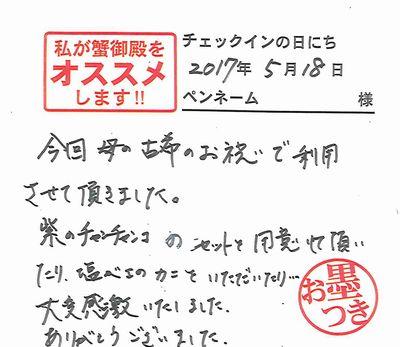 私が蟹御殿を
オススメ
します!!
チェックインの日にち
2017年 5月18日
ペンネーム 様
今回 母の古希のお祝いで利用
させて頂きました。
紫のチャンチャンコ のセットを用意して頂い
たり、塩べろのカニをいただいたり…
大変感激いたしました。
ありがとうございました。
お墨つき